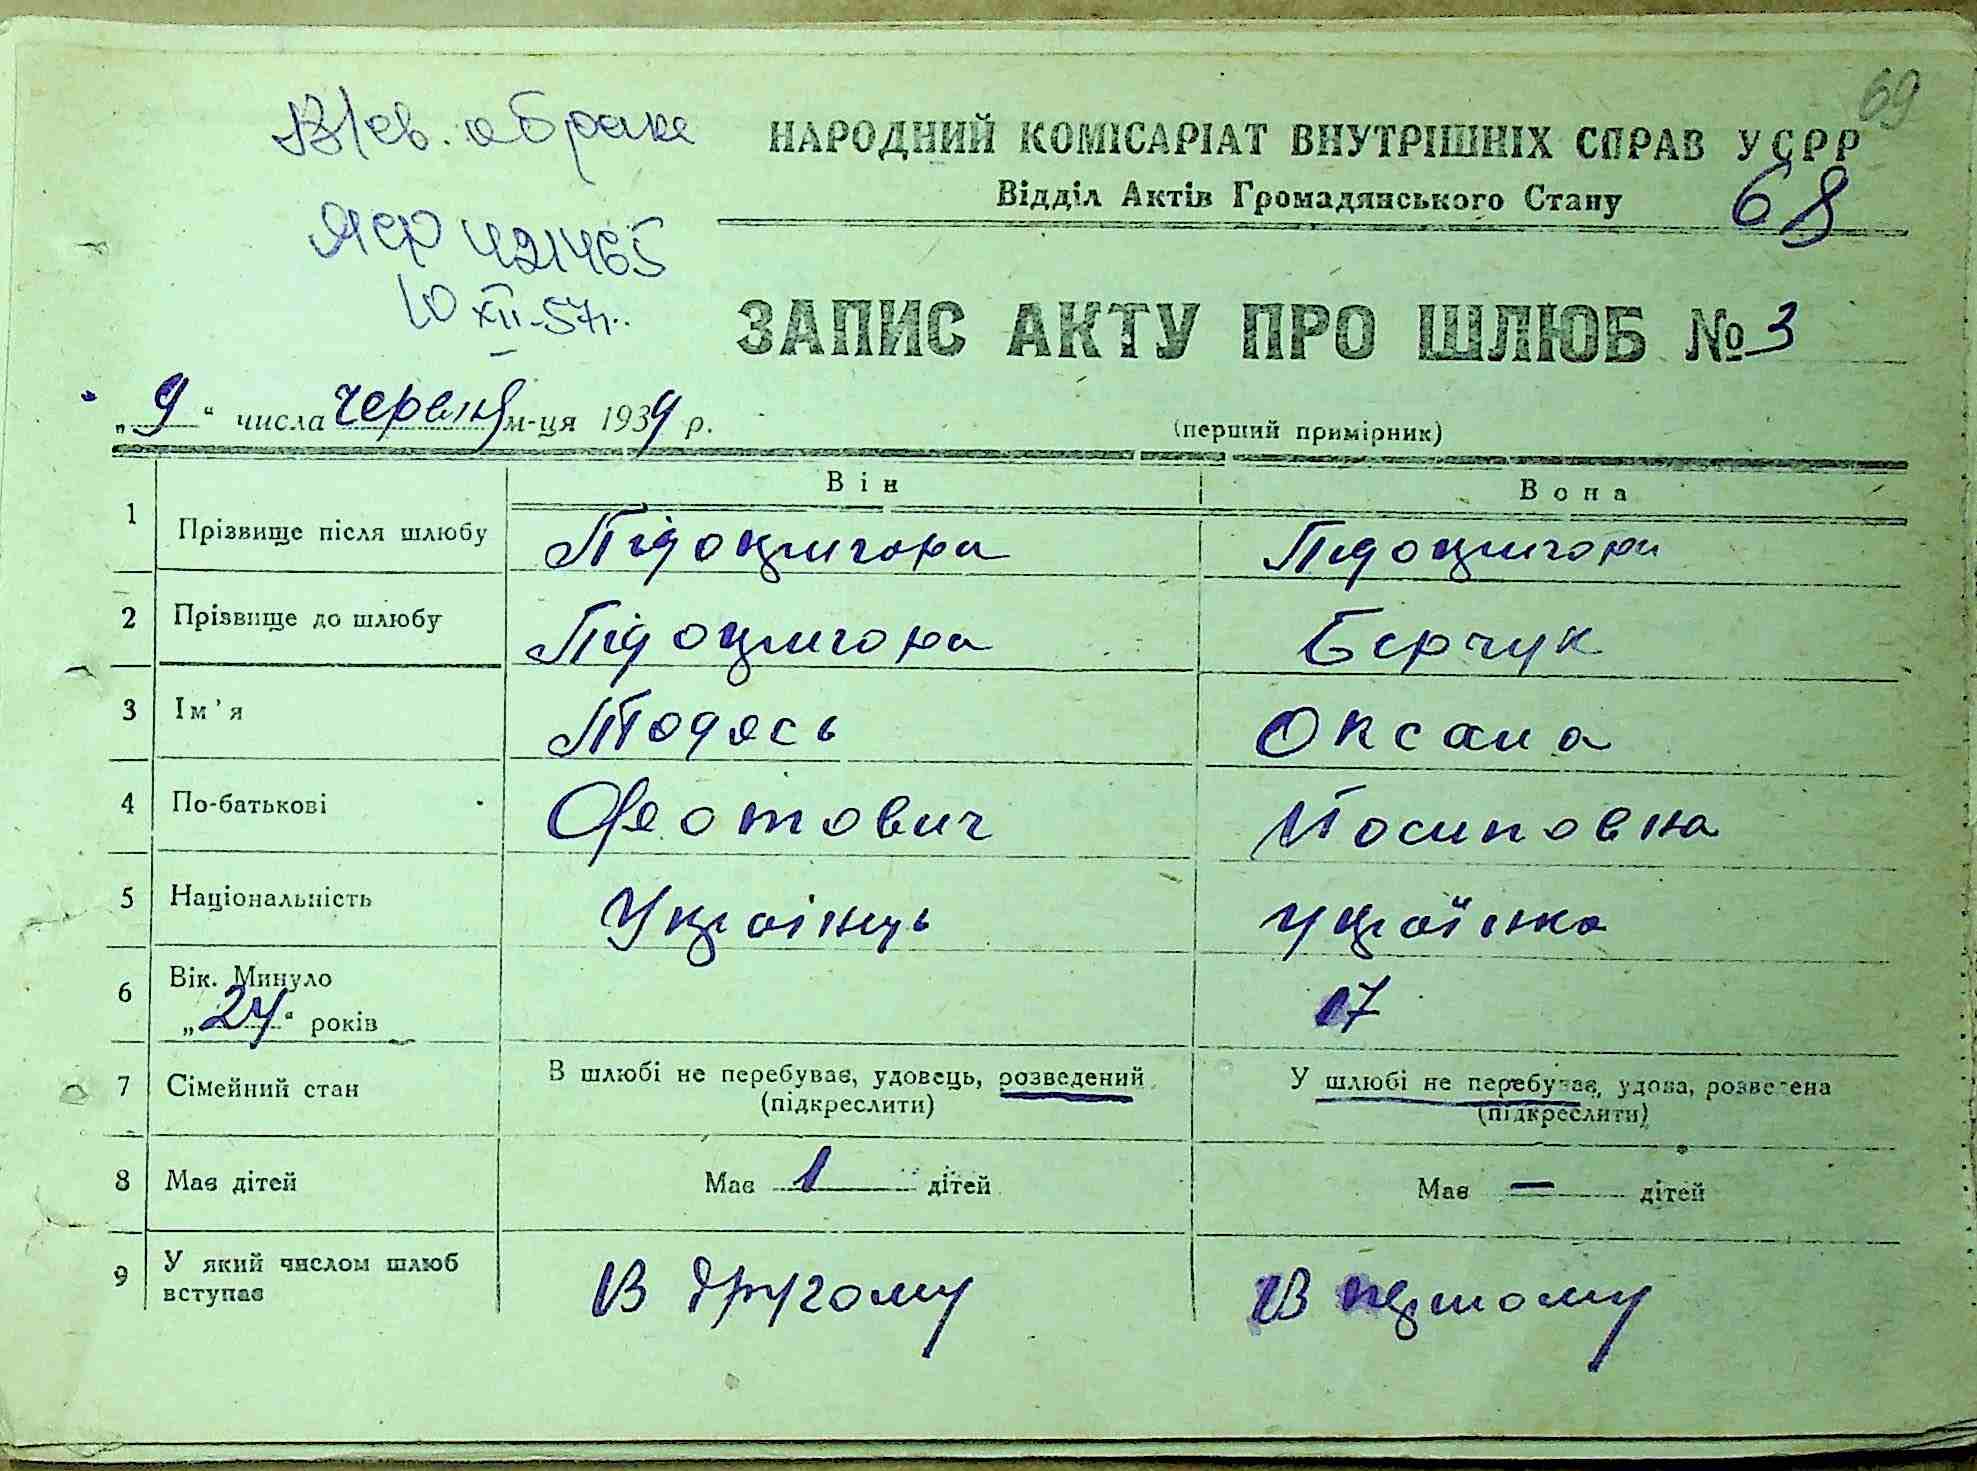 69
В/св. о браке
НАРОДНИЙ КОМІСАРІАТ ВНУТРІШНІХ СПРАВ УСРР
Відділ Актів Громадянського Стану
68
ЯФ 421465
10 XII-57г.
ЗАПИС АКТУ ПРО ШЛЮБ № 3
„9“ числа червня м-ця 1934 р.
(перший примірник)
Він Вона
1 Прізвище після шлюбу Підоцигора Підоцигора
2 Прізвище до шлюбу Підоцигора Берчук
3 Ім'я Тодось Оксана
4 По-батькові Феотович Йосиповна
5 Національність Українець українка
6 Вік. Минуло
„24“ років 17
7 Сімейний стан В шлюбі не перебуває, удовець, розведений У шлюбі не перебуває, удова, розведена
(підкреслити) (підкреслити)
8 Має дітей Має 1 дітей Має — дітей
9 У який числом шлюб
вступає В другому В першому